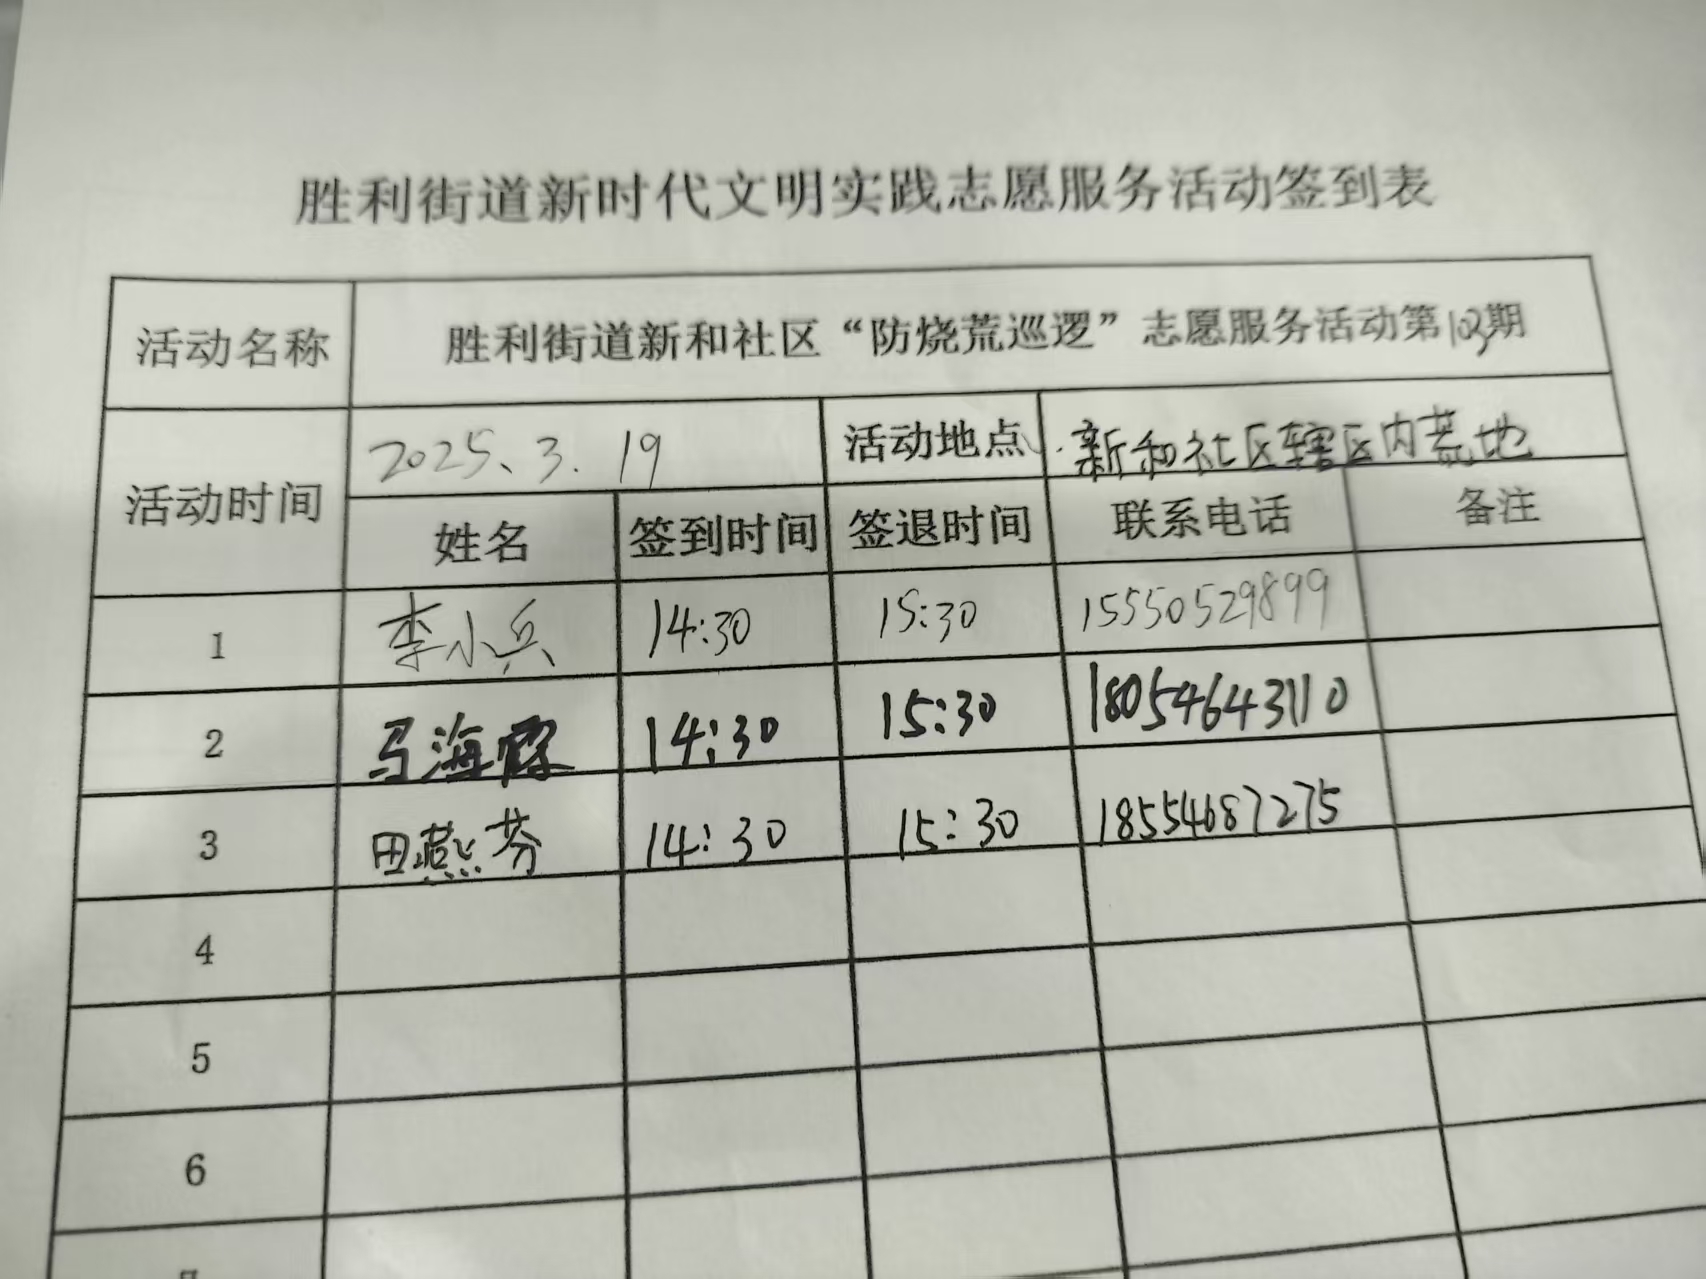 胜利街道新时代文明实践志愿服务活动签到表
活动名称 胜利街道新和社区“防烧荒巡逻”志愿服务活动第103期
活动时间 2025、3.19 活动地点 新和社区辖区内荒地
姓名 签到时间 签退时间 联系电话 备注
1 李小兵 14:30 15:30 15550529899
2 马海霞 14:30 15:30 18054643110
3 田燕芬 14:30 15:30 18554687275
4
5
6